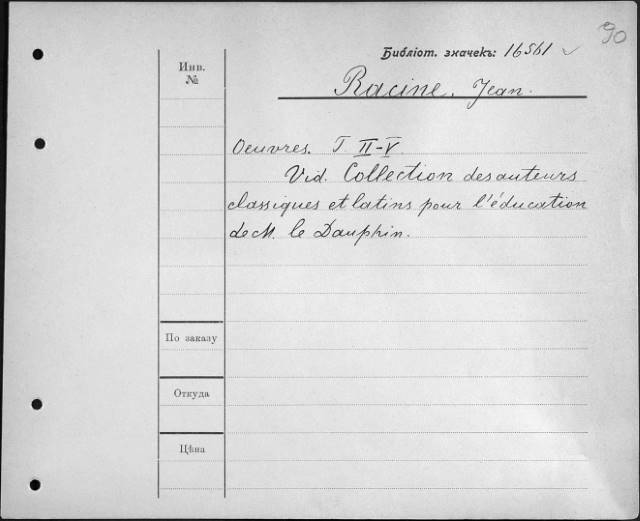 90
Библіот. значекъ: 16561
Инв.
№
Racine, Jean.
Oeuvres. T. II-V
Vid. Collection des auteurs
classiques et latins pour l'éducation
de M. le Dauphin.
По заказу
Откуда
Цѣна